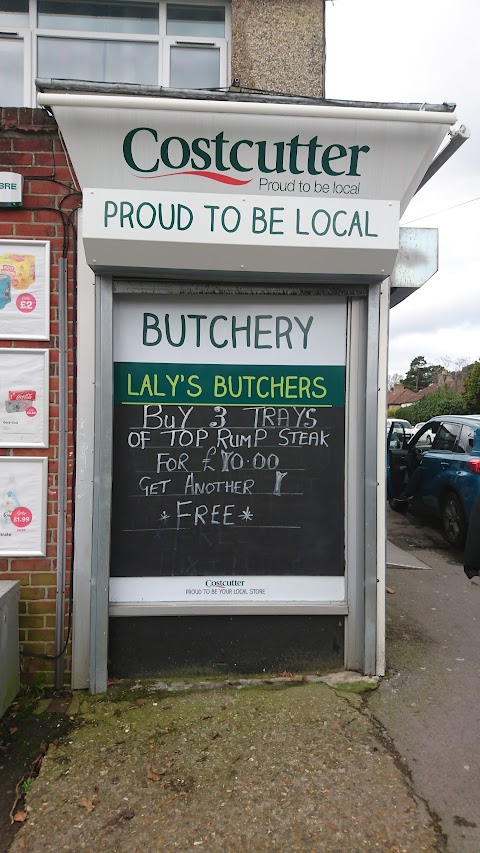 Costcutter
Proud to be local
PROUD TO BE LOCAL
BRE
£2
BUTCHERY
LALY'S BUTCHERS
BUY 3 TRAYS
OF TOP RUMP STEAK
FOR £10.00
GET ANOTHER 1
*FREE*
£1.99
Costcutter
PROUD TO BE YOUR LOCAL STORE